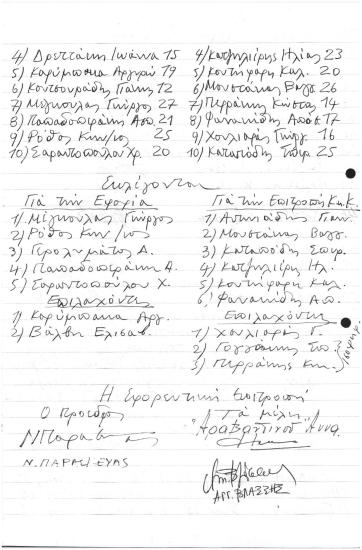 4) Δρεττάκη Ιωάννα 15
5) Καρύμπακα Αργυρώ 19
6) Κοντουράδης Γιάννης 12
7) Μίγκουλας Γιώργος 27
8) Παπαδοπεράκη Ασπ. 21
9) Ρόθος Κων/νος 25
10) Σαραντοπούλου Χρ. 20
4) Κατζηλιέρης Ηλίας 23
5) Κοντιφάρη Καλ. 20
6) Μουστάκας Βαγγ. 26
7) Περράκης Κώστας 14
8) Φανακίδης Απόστ. 17
9) Χουλιαράς Γιώργ. 16
10) Καταπόδης Σπυρ. 25
Εκλέγονται
Για την Εφορία
1) Μίγκουλας Γιώργος
2) Ρόθος Κων/νος
3) Γερολυμάτος Α.
4) Παπαδοπεράκη Α.
5) Σαραντοπούλου Χ.
Επιλαχόντες
1) Καρύμπακα Αργ.
2) Βάλβη Ελισαβ.
Για την Επιτροπή Κ.κ.Κ.
1) Αντωνιάδης Γιαν.
2) Μουστάκας Βαγγ.
3) Καταπόδης Σπυρ.
4) Κατζηλιέρης Ηλ.
5) Κοντιφάρη Καλ.
6) Φανακίδης Απ.
Επιλαχόντες
1) Χουλιαράς Γ.
2) Γογγάκης Σπ.
3) Περράκης Κων.
Η Εφορευτική Επιτροπή
Ο Πρόεδρος
Ν. ΠΑΡΑΣΚΕΥΑΣ
Τα μέλη
Αραβαντινού Άννα
ΑΡΓ. ΒΛΑΣΣΗΣ